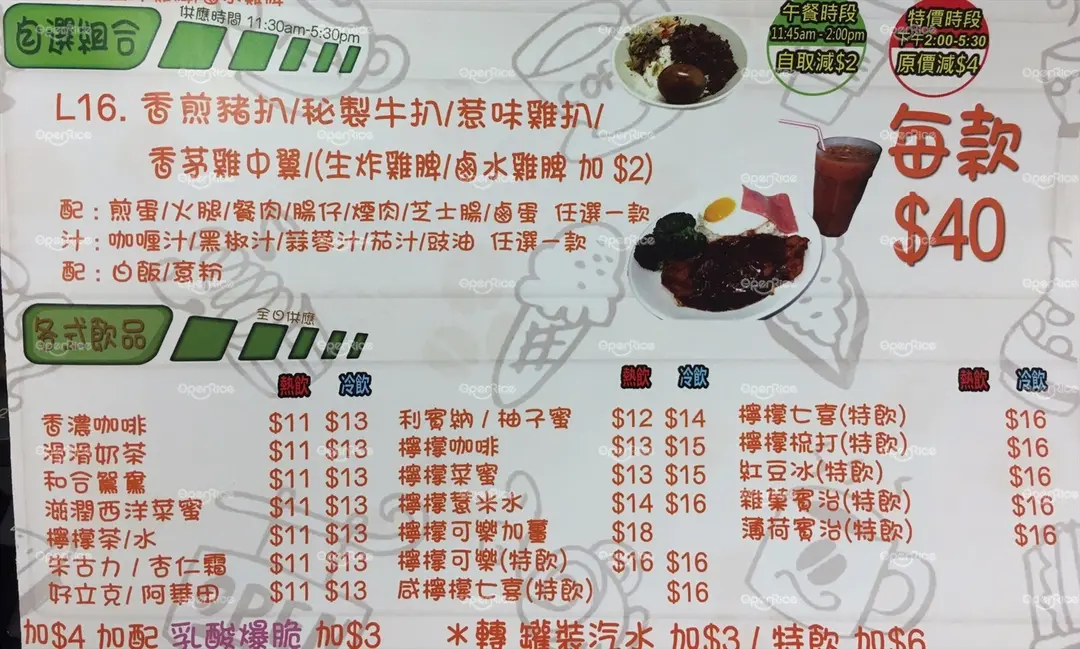 自選組合
供應時間 11:30am-5:30pm
午餐時段
11:45am - 2:00pm
自取減$2
特價時段
下午2:00-5:30
原價減$4
L16. 香煎豬扒/秘製牛扒/惹味雞扒/
香茅雞中翼/(生炸雞脾/鹵水雞脾 加 $2)
每款
$40
配：煎蛋/火腿/餐肉/腸仔/煙肉/芝士腸/鹵蛋 任選一款
汁：咖喱汁/黑椒汁/蒜蓉汁/茄汁/豉油 任選一款
配：白飯/意粉
各式飲品
全日供應
熱飲 冷飲
香濃咖啡 $11 $13
滑滑奶茶 $11 $13
和合鴛鴦 $11 $13
滋潤西洋菜蜜 $11 $13
檸檬茶/水 $11 $13
朱古力 / 杏仁霜 $11 $13
好立克/ 阿華田 $11 $13
熱飲 冷飲
利賓納 / 柚子蜜 $12 $14
檸檬咖啡 $13 $15
檸檬菜蜜 $13 $15
檸檬薏米水 $14 $16
檸檬可樂加薑 $18
檸檬可樂(特飲) $16 $16
咸檸檬七喜(特飲) $16
熱飲 冷飲
檸檬七喜(特飲) $16
檸檬梳打(特飲) $16
紅豆冰(特飲) $16
雜菓賓治(特飲) $16
薄荷賓治(特飲) $16
加$4 加配 乳酸爆脆 加$3
＊轉 罐裝汽水 加$3 / 特飲 加$6
OpenRice